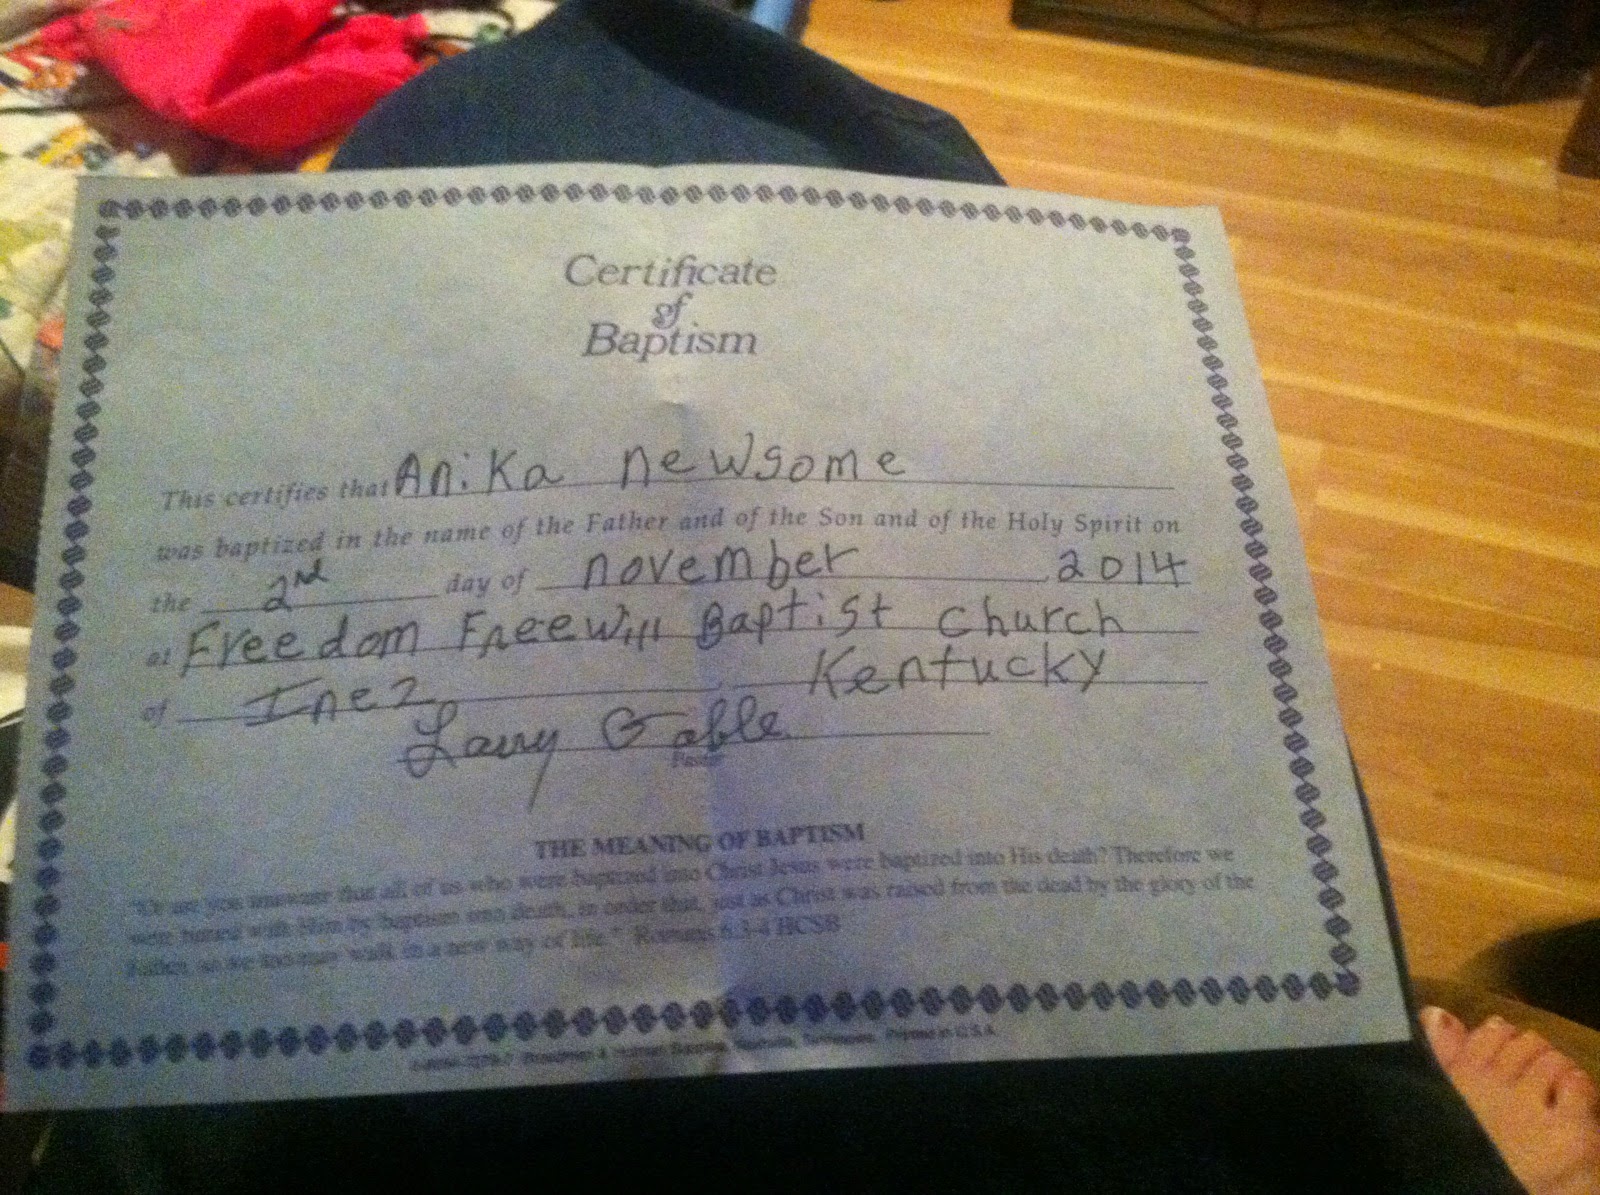 Certificate
of
Baptism
This certifies that Anika Newsome
was baptized in the name of the Father and of the Son and of the Holy Spirit on
the 2nd day of november 2014
at Freedom Freewill Baptist Church
of Inez Kentucky
Larry Gable
Pastor
THE MEANING OF BAPTISM
"Or are you unaware that all of us who were baptized into Christ Jesus were baptized into His death? Therefore we
were buried with Him by baptism into death, in order that, just as Christ was raised from the dead by the glory of the
Father, so we too may walk in a new way of life." Romans 6:3-4 HCSB
Broadman & Holman Supplies, Nashville, Tennessee. Printed in U.S.A.